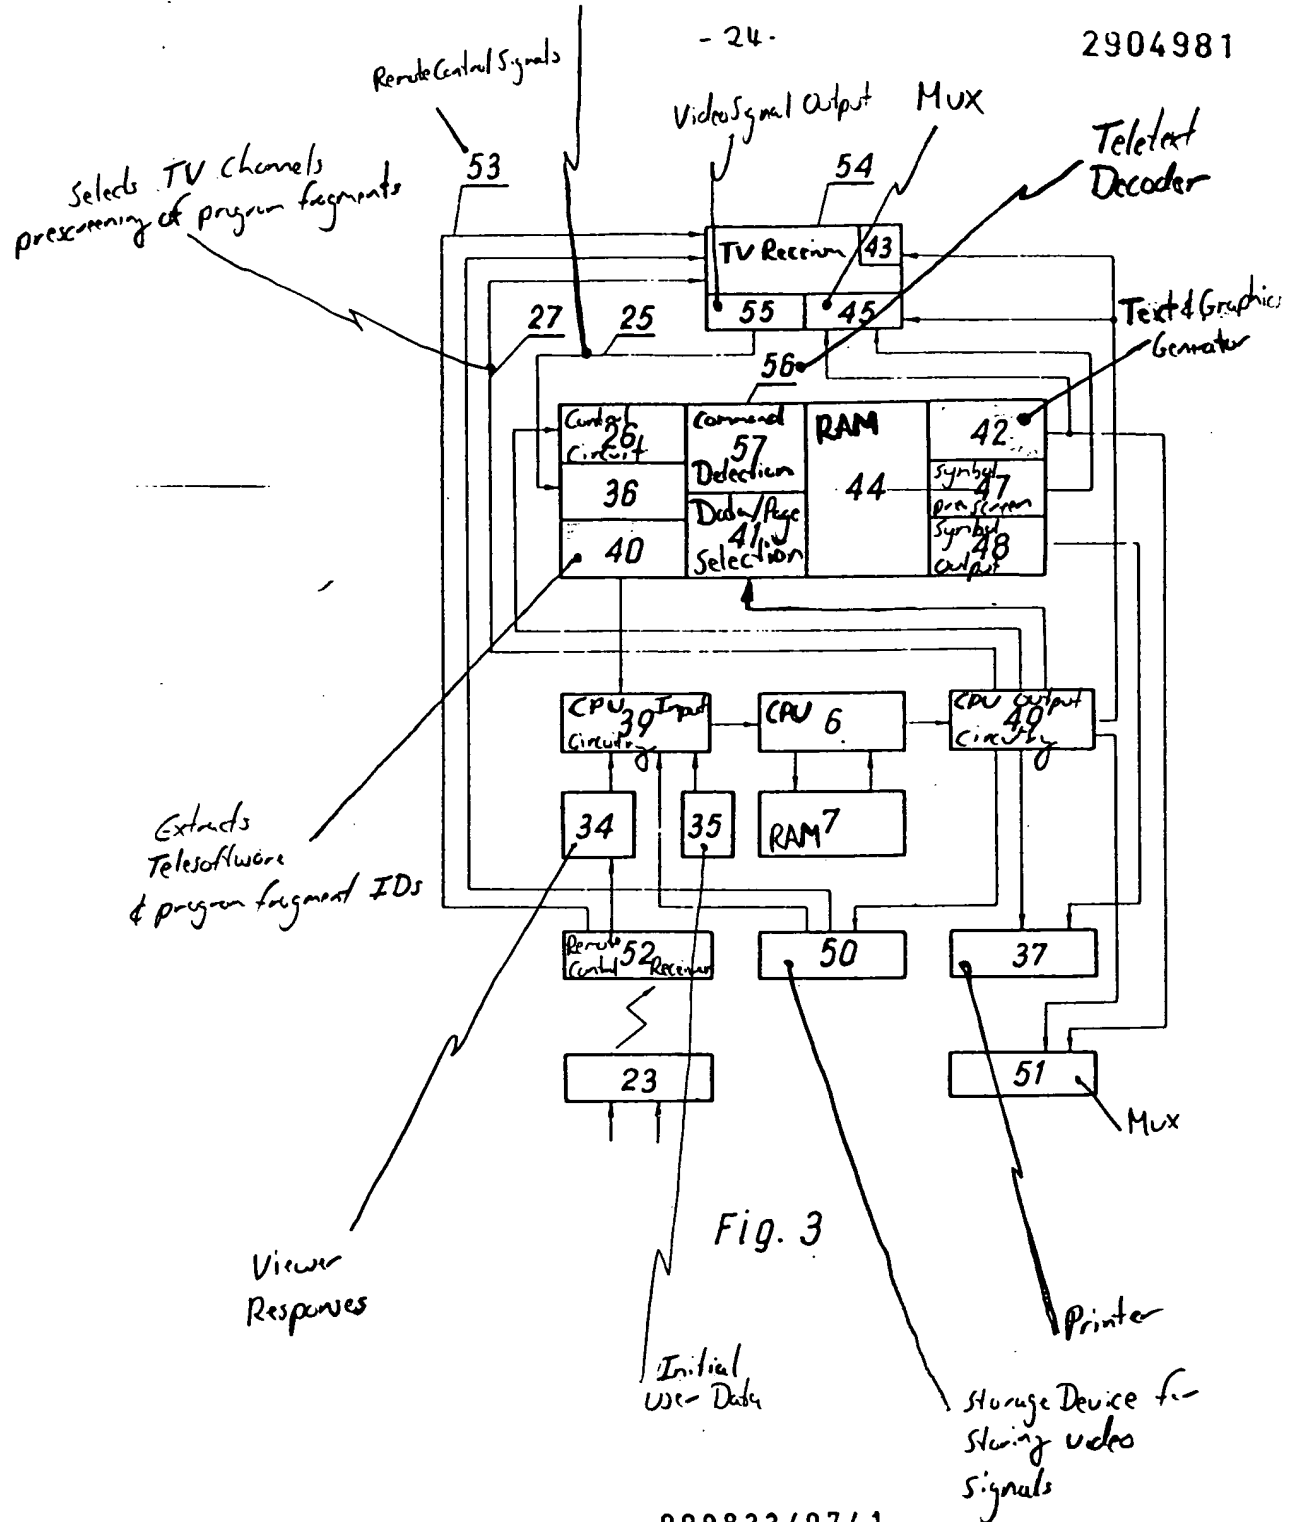 - 24 -
2904981
Remote Control Signals
Video Signal Output
Mux
Teletext
Decoder
Selects TV Channels
prescreening of program fragments
53
54
TV Receiver
43
55
45
27
25
56
Text & Graphics
Generator
Control
26
Circuit
Command
57
Detection
RAM
44
42
36
Symbol
47
prescreen
40
Data/Page
41
Selection
Symbol
48
Output
CPU Input
39
Circuitry
CPU 6
CPU Output
49
Circuitry
34
35
RAM 7
Extracts
Telesoftware
& program fragment IDs
Remote
52
Control Receiver
50
37
23
51
Mux
Fig. 3
Viewer
Responses
Printer
Initial
User Data
Storage Device for
Storing video
Signals